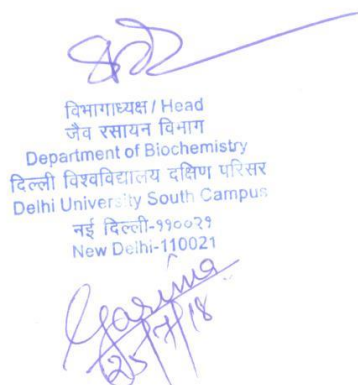 विभागाध्यक्ष / Head
जैव रसायन विभाग
Department of Biochemistry
दिल्ली विश्वविद्यालय दक्षिण परिसर
Delhi University South Campus
नई दिल्ली-११००२१
New Delhi-110021
Garima
25/7/18